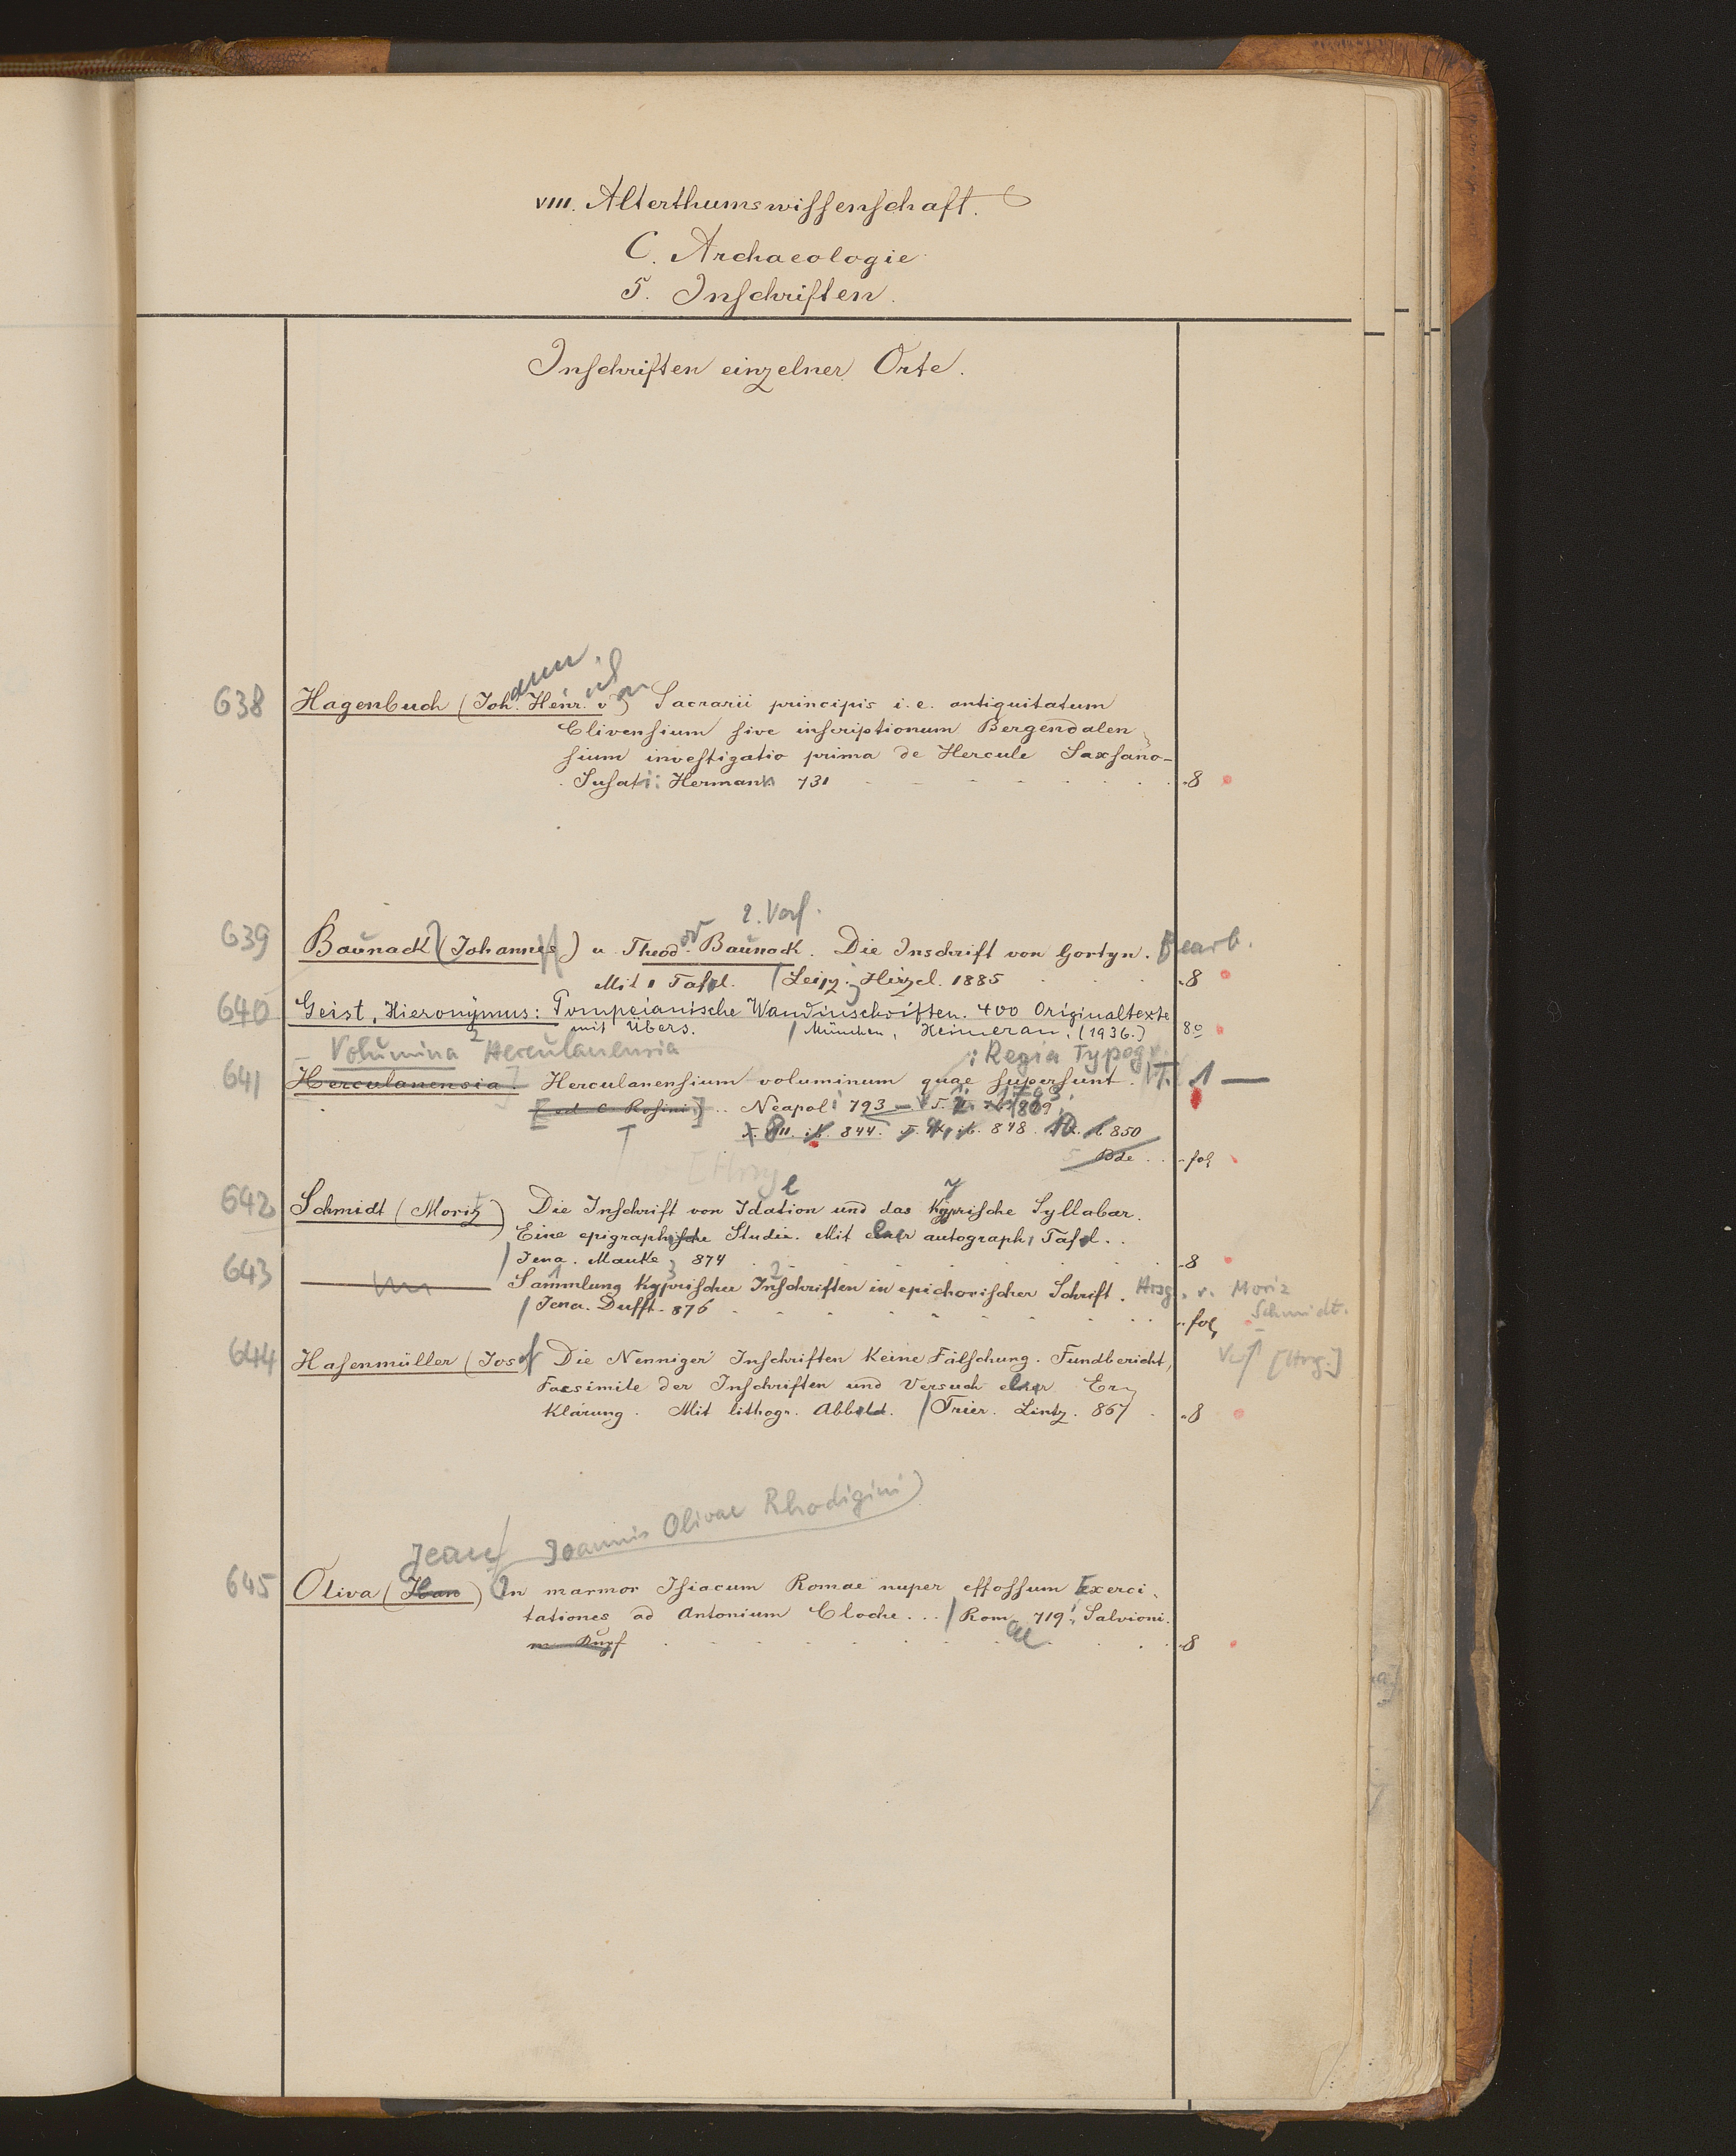 VIII. Alterthumswissenschaft.
C. Archaeologie
5. Inschriften.
Inschriften einzelner Orte.
638 Hagenbuch (Joh. Henr. v) Sacrarii principis i. e. antiquitatum
Clivensium sive inscriptionum Bergendalen
sium investigatio prima de Hercule Saxsano-
Susati: Hermann 731 8
2. Verf.
639 Baunack (Johannes) u. Theod. Baunack. Die Inschrift von Gortyn. Bearb.
Mit 1 Tafel. / Leipz. Hirzel. 1885 8
640 Geist, Hieronymus: Pompeianische Wandinschriften. 400 Originaltexte
mit Übers. / München, Heimeran, (1936.) 8°
Volumina Herculanensia : Regia Typogr.
641 Herculanensia. Herculanensium voluminum quae supersunt. T. 1 —
[ed. C. Rosini] .. Neapoli 793 1809
T. VIII. ib. 844. T. IX. ib. 848. 850
5 Bde .. fol
[Hrsg
642 Schmidt (Moritz) Die Inschrift von Idalion und das Kyprische Syllabar.
Eine epigraphische Studie. Mit einer autograph. Tafel. ..
/ Jena. Mauke 874 8
643 — Sammlung Kyprischer Inschriften in epichorischer Schrift. Hrsg. v. Moriz
Schmidt.
/ Jena. Dufft. 876 fol
Verf [Hrsg.]
644 Hasenmüller (Josef Die Nenniger Inschriften Keine Fälschung. Fundbericht,
Facsimile der Inschriften und Versuch einer Er
klärung. Mit lithogr. Abbild. / Trier. Lintz. 867 8
Jean Joannis Olivae Rhodigini)
645 Oliva (Jean) In marmor Isiacum Romae nuper effossum Exerci
tationes ad Antonium Cloche... / Romae 719. Salvioni.
m Kupf 8